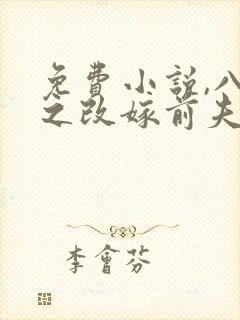 免費小説,八
之改嫁前夫
李會芬